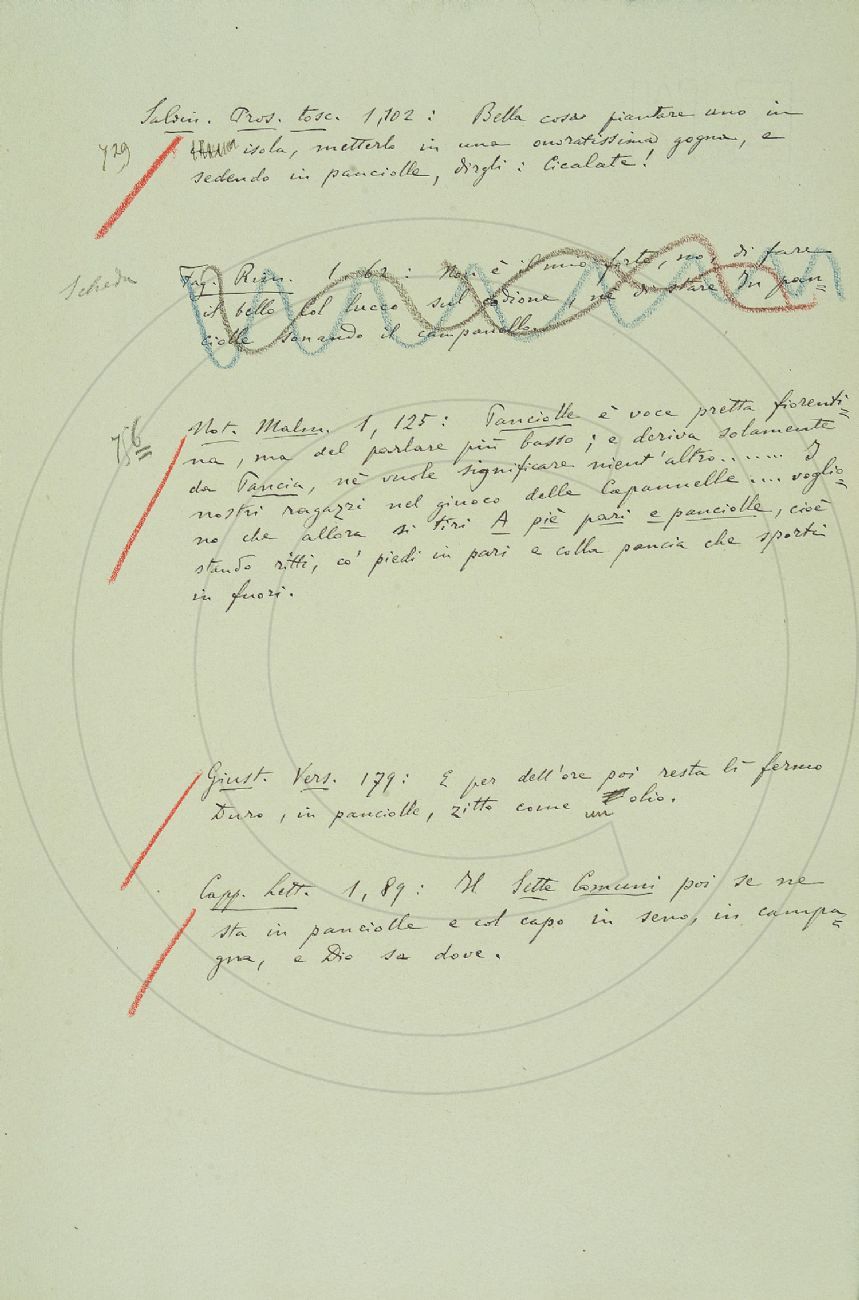 Salvin. Pros. tosc. 1,102 : Bella cosa piantare uno in
729
isola, metterlo in una onoratissima gogna, e
sedendo in panciolle, dirgli : Cicalate!
Scheda
Fag. Rim. 1, 62 : Non è il mio forte, no, di fare
il bello Col lucco sul codione, nè di stare In pan-
ciolle sonando il campanello.
756
Not. Malm. 1, 125 : Panciolle è voce pretta fiorenti-
na, ma del parlare più basso ; e deriva solamente
da Pancia, nè vuole significare nient'altro....... I
nostri ragazzi nel giuoco delle Capannelle .... voglio-
no che allora si tiri A piè pari e panciolle, cioè
stando ritti, co' piedi in pari e colla pancia che sporti
in fuori.
Giust. Vers. 179 : E per dell'ore poi resta lì fermo
Duro, in panciolle, zitto come un olio.
Capp. Lett. 1, 89 : Il Sette Comuni poi se ne
sta in panciolle e col capo in seno, in campa-
gna, e Dio sa dove.